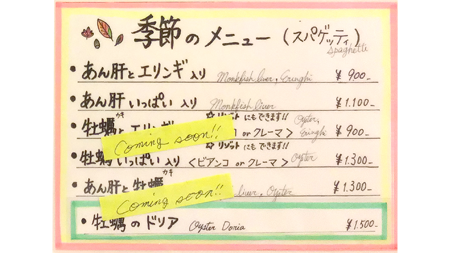 季節のメニュー(スパゲッティ)
Spaghetti
・あん肝とエリンギ入り Monkfish liver, Eringhi ¥900-
・あん肝いっぱい入り Monkfish liver ¥1.100-
カキ リゾットにもできます!! Oyster,
・牡蠣とエリンギ or クレーマ> Eringhi ¥900-
Coming soon!!
・牡蠣いっぱい入り <ビアンコ or クレーマ> oyster ¥1.300-
カキ
・あん肝と牡蠣 liver, Oyster ¥1.300-
Coming soon!!
・牡蠣のドリア Oyster Doria ¥1.500-